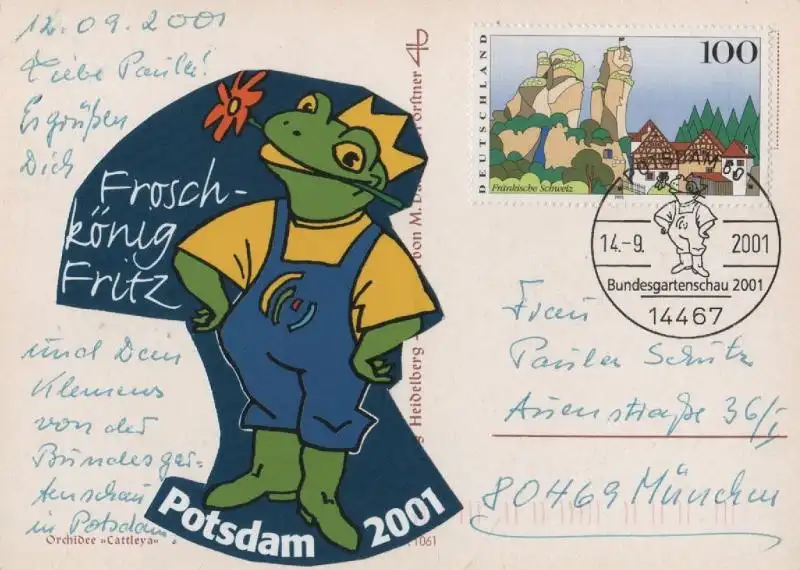 12.09.2001
Liebe Paula!
Es grüßen
Dich
Frosch-
könig
Fritz
und Dein
Klemens
von der
Bundesgar-
tenschau
in Potsdam.
Potsdam 2001
Orchidee »Cattleya«
1061
Heidelberg
von M.
Forstner
DEUTSCHLAND
100
Fränkische Schweiz
POTSDAM
14.-9. 2001
Bundesgartenschau 2001
14467
Frau
Paula Schütz
Auenstraße 36/I
80469 München